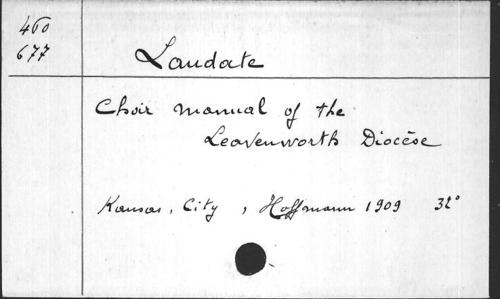 460
677
Laudate
Choir manual of the
Leavenworth Diocese
Kansas, City, Hoffmann 1909 32°